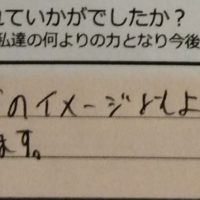 れていかがでしたか？
私達の何よりの力となり今後
のイメージどよ
ます。